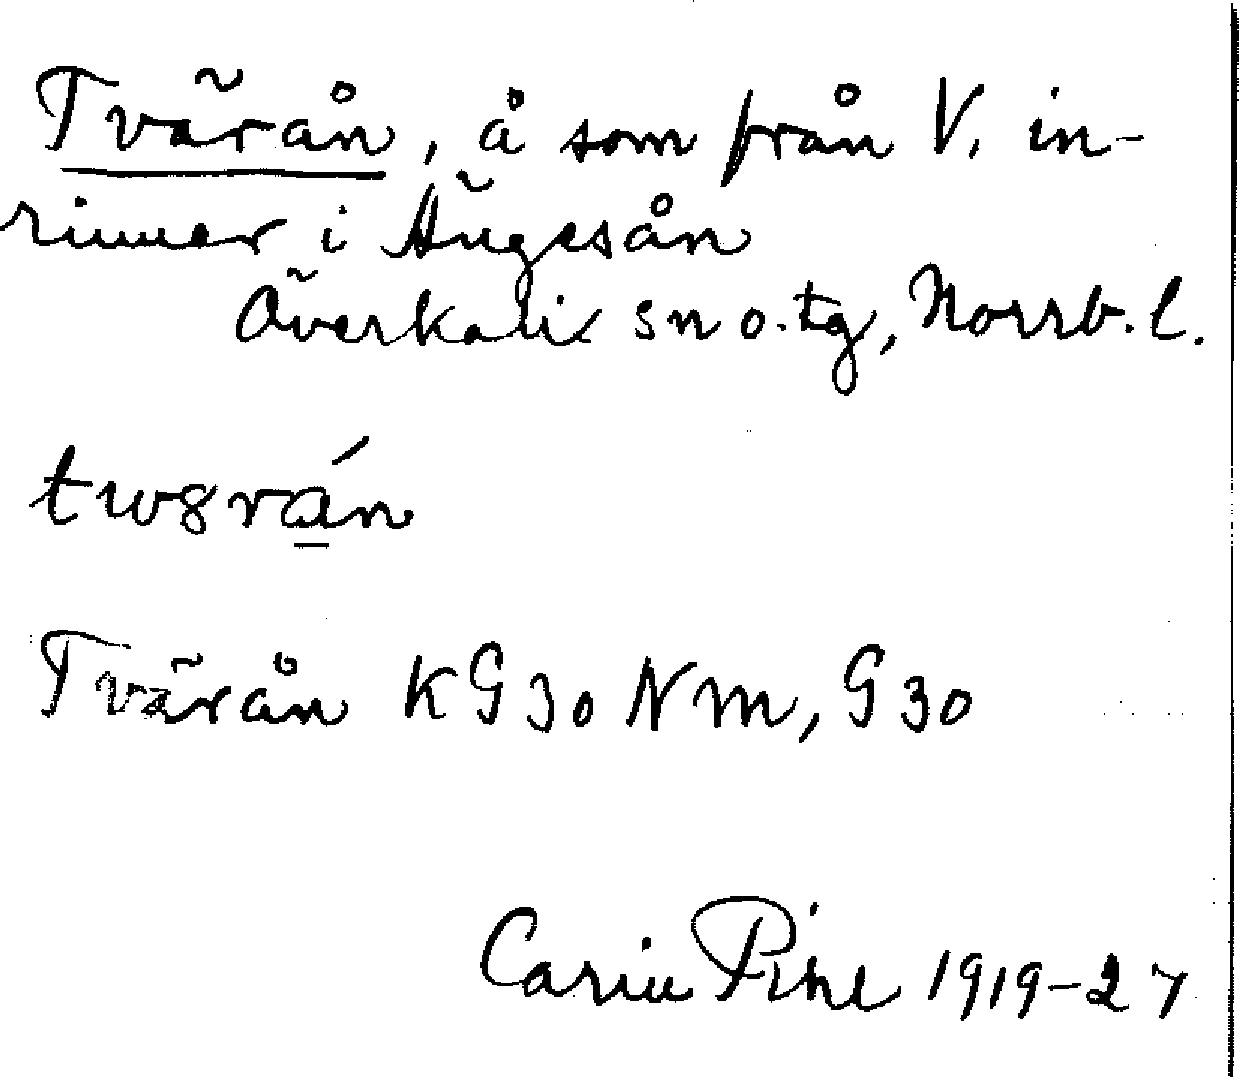 Tvärån, å som från V. in-
rinner i Ängesån
Överkalix sn o. tg, Norrb. l.
twsrá̱n
Tvärån KG30 NM, G30
Carin Pihl 1919-27